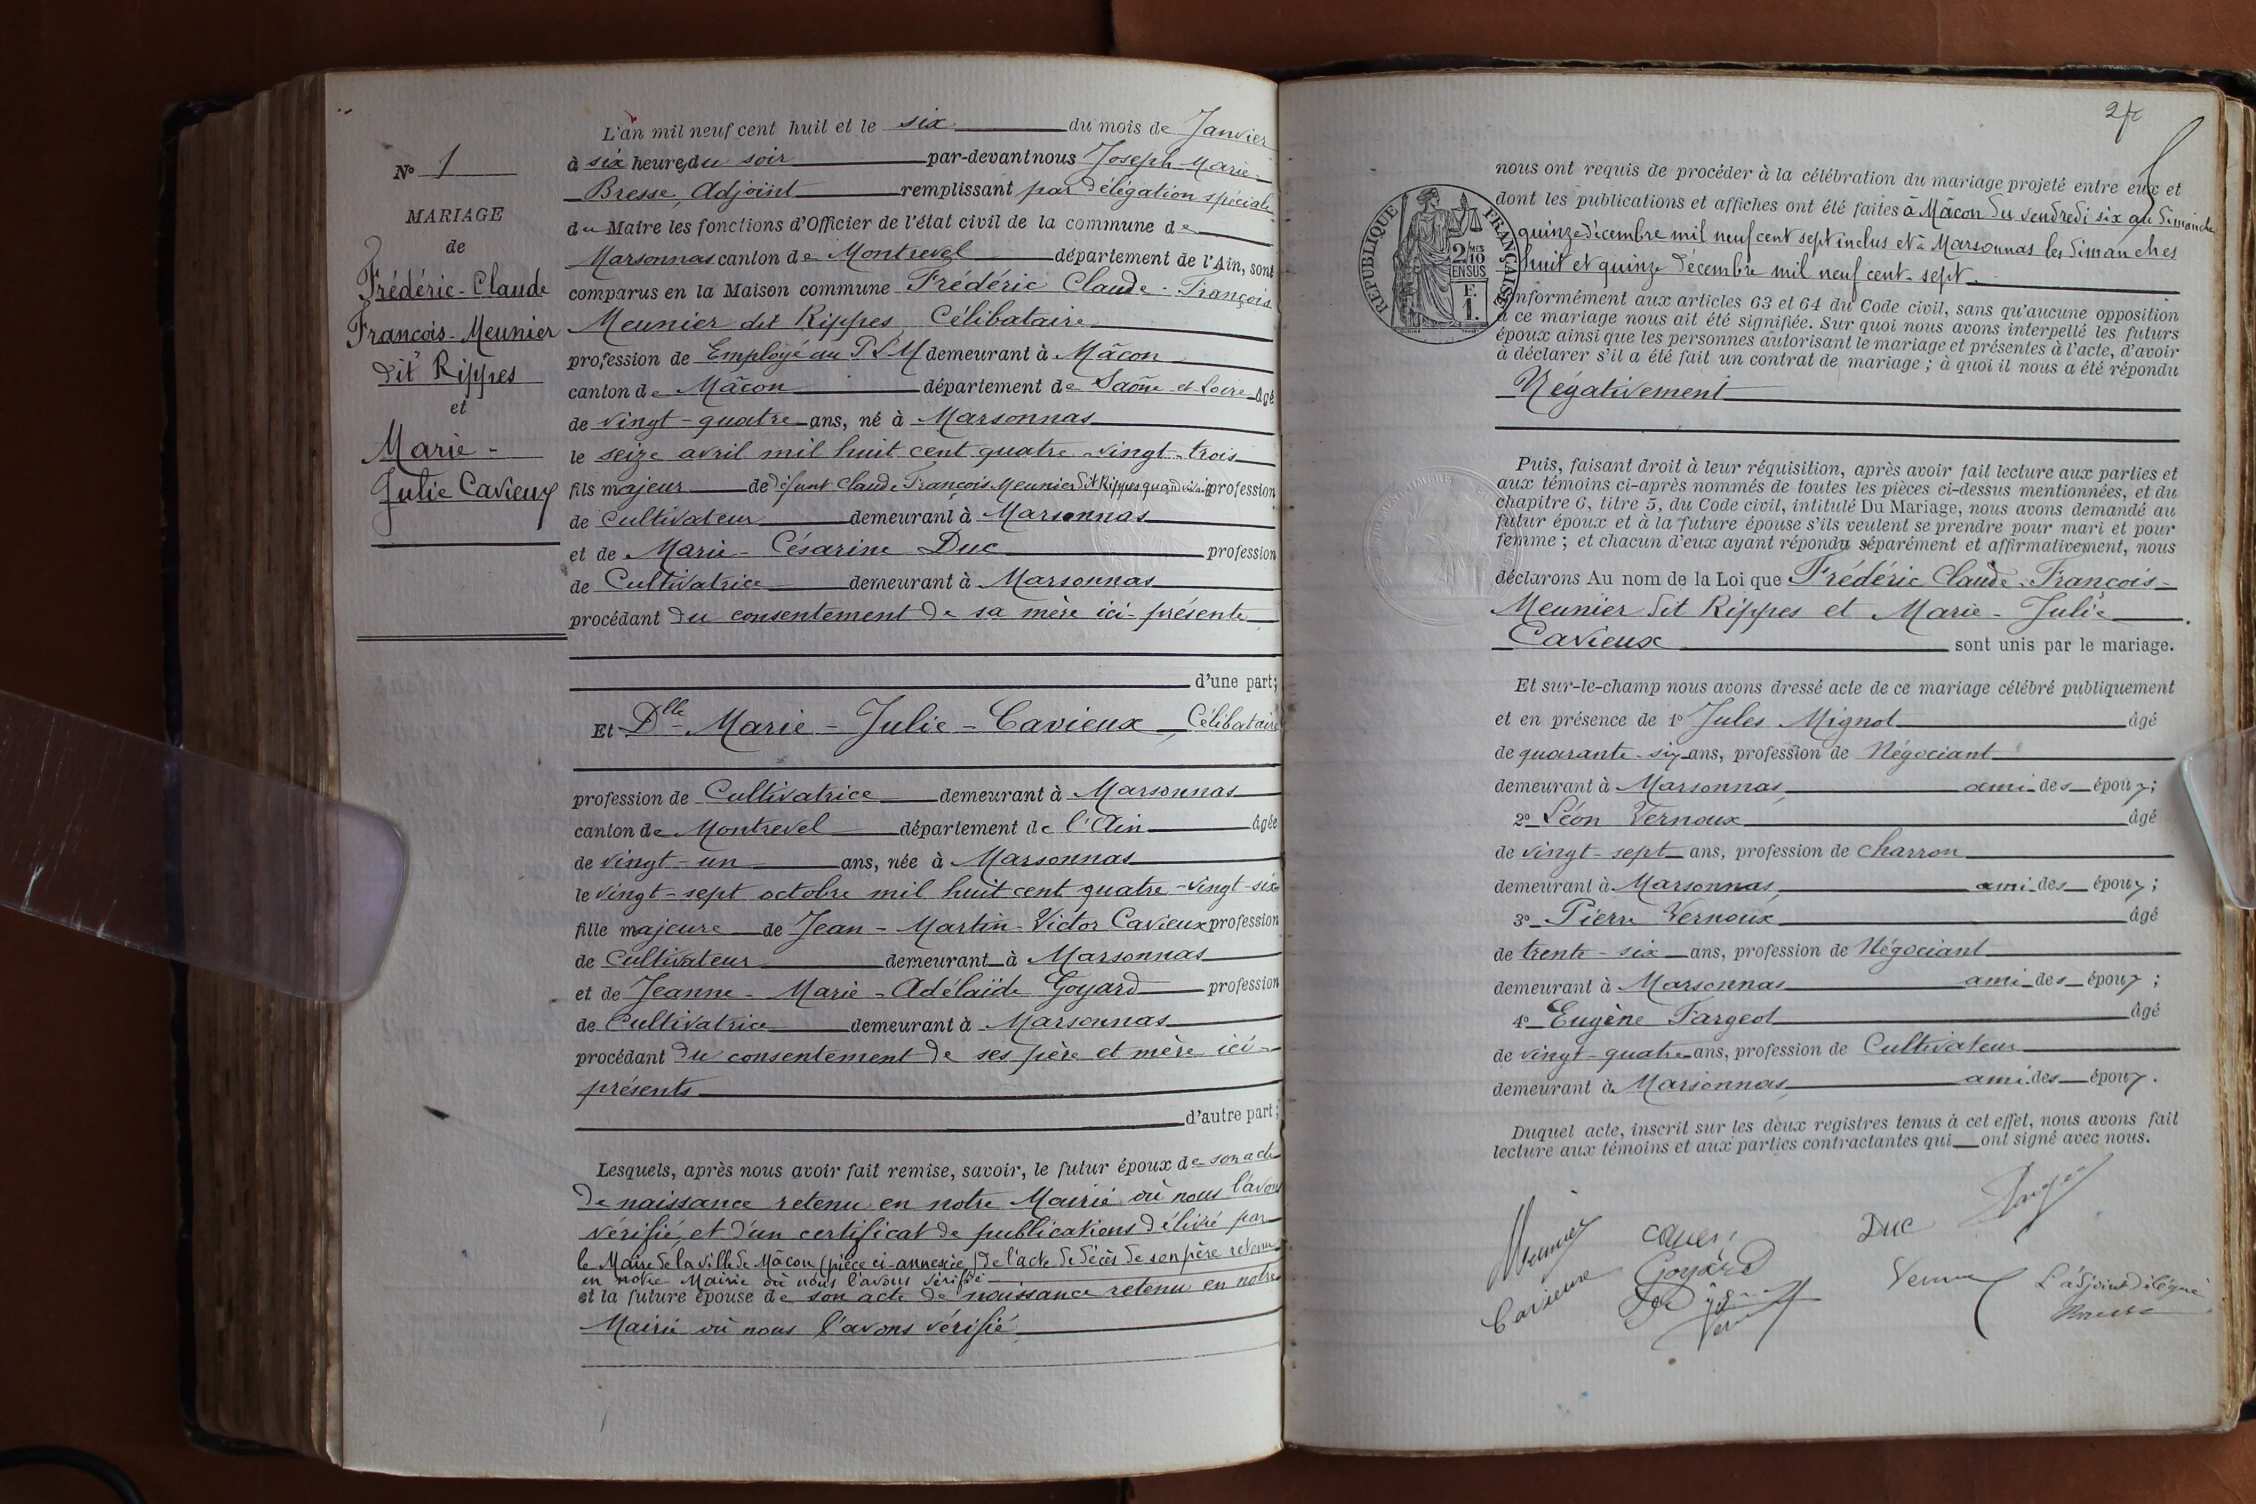 N° 1
MARIAGE
de
Frédéric-Claude
François-Meunier
dit Rippes
et
Marie-
Julie Cavieux
L'an mil neuf cent huit et le six du mois de Janvier
à six heures du soir par-devant nous Joseph Marie-
Bresse, Adjoint remplissant par délégation spéciale
du Maire les fonctions d'Officier de l'état civil de la commune de
Marsonnas canton de Montrevel département de l'Ain, sont
comparus en la Maison commune Frédéric Claude-François
Meunier dit Rippes, Célibataire
profession de Employé au PLM demeurant à Mâcon
canton de Mâcon département de Saône et Loire âgé
de vingt-quatre ans, né à Marsonnas
le seize avril mil huit cent quatre-vingt-trois
fils majeur de défunt Claude François Meunier dit Rippes quand vivait profession
de Cultivateur demeurant à Marsonnas
et de Marie-Césarine Duc profession
de Cultivatrice demeurant à Marsonnas
procédant du consentement de sa mère ici-présente
d'une part;
Et Dlle Marie-Julie-Cavieux, Célibataire
profession de Cultivatrice demeurant à Marsonnas
canton de Montrevel département de l'Ain âgée
de vingt-un ans, née à Marsonnas
le vingt-sept octobre mil huit cent quatre-vingt-six
fille majeure de Jean-Martin-Victor Cavieux profession
de Cultivateur demeurant à Marsonnas
et de Jeanne-Marie-Adélaïde Goyard profession
de Cultivatrice demeurant à Marsonnas
procédant du consentement de ses père et mère ici-
présents
d'autre part;
Lesquels, après nous avoir fait remise, savoir, le futur époux de son acte
de naissance retenu en notre Mairie où nous l'avons
vérifié, et d'un certificat de publications délivré par
le Maire de la ville de Mâcon (pièce ci-annexée) de l'acte de décès de son père retenu
en notre Mairie où nous l'avons vérifié
et la future épouse de son acte de naissance retenu en notre
Mairie où nous l'avons vérifié
nous ont requis de procéder à la célébration du mariage projeté entre eux et
dont les publications et affiches ont été faites à Mâcon du vendredi six au dimanche
quinze décembre mil neuf cent sept inclus et à Marsonnas les dimanches
huit et quinze décembre mil neuf cent-sept.
RÉPUBLIQUE FRANÇAISE
2/10
EN SUS
F.
1.
conformément aux articles 63 et 64 du Code civil, sans qu'aucune opposition
à ce mariage nous ait été signifiée. Sur quoi nous avons interpellé les futurs
époux ainsi que les personnes autorisant le mariage et présentes à l'acte, d'avoir
à déclarer s'il a été fait un contrat de mariage ; à quoi il nous a été répondu
Négativement
Puis, faisant droit à leur réquisition, après avoir fait lecture aux parties et
aux témoins ci-après nommés de toutes les pièces ci-dessus mentionnées, et du
chapitre 6, titre 5, du Code civil, intitulé Du Mariage, nous avons demandé au
futur époux et à la future épouse s'ils veulent se prendre pour mari et pour
femme ; et chacun d'eux ayant répondu séparément et affirmativement, nous
déclarons Au nom de la Loi que Frédéric Claude-François-
Meunier dit Rippes et Marie-Julie
Cavieux sont unis par le mariage.
Et sur-le-champ nous avons dressé acte de ce mariage célébré publiquement
et en présence de 1° Jules Mignot âgé
de quarante-six ans, profession de Négociant
demeurant à Marsonnas, ami des époux;
2° Léon Vernoux âgé
de vingt-sept ans, profession de charron
demeurant à Marsonnas, ami des époux;
3° Pierre Vernoux âgé
de trente-six ans, profession de Négociant
demeurant à Marsonnas ami des époux;
4° Eugène Fargeot âgé
de vingt-quatre ans, profession de Cultivateur
demeurant à Marsonnas, ami des époux.
Duquel acte, inscrit sur les deux registres tenus à cet effet, nous avons fait
lecture aux témoins et aux parties contractantes qui ont signé avec nous.
Meunier
Duc
Cavieux
Goyard
L'adjoint délégué
Bresse